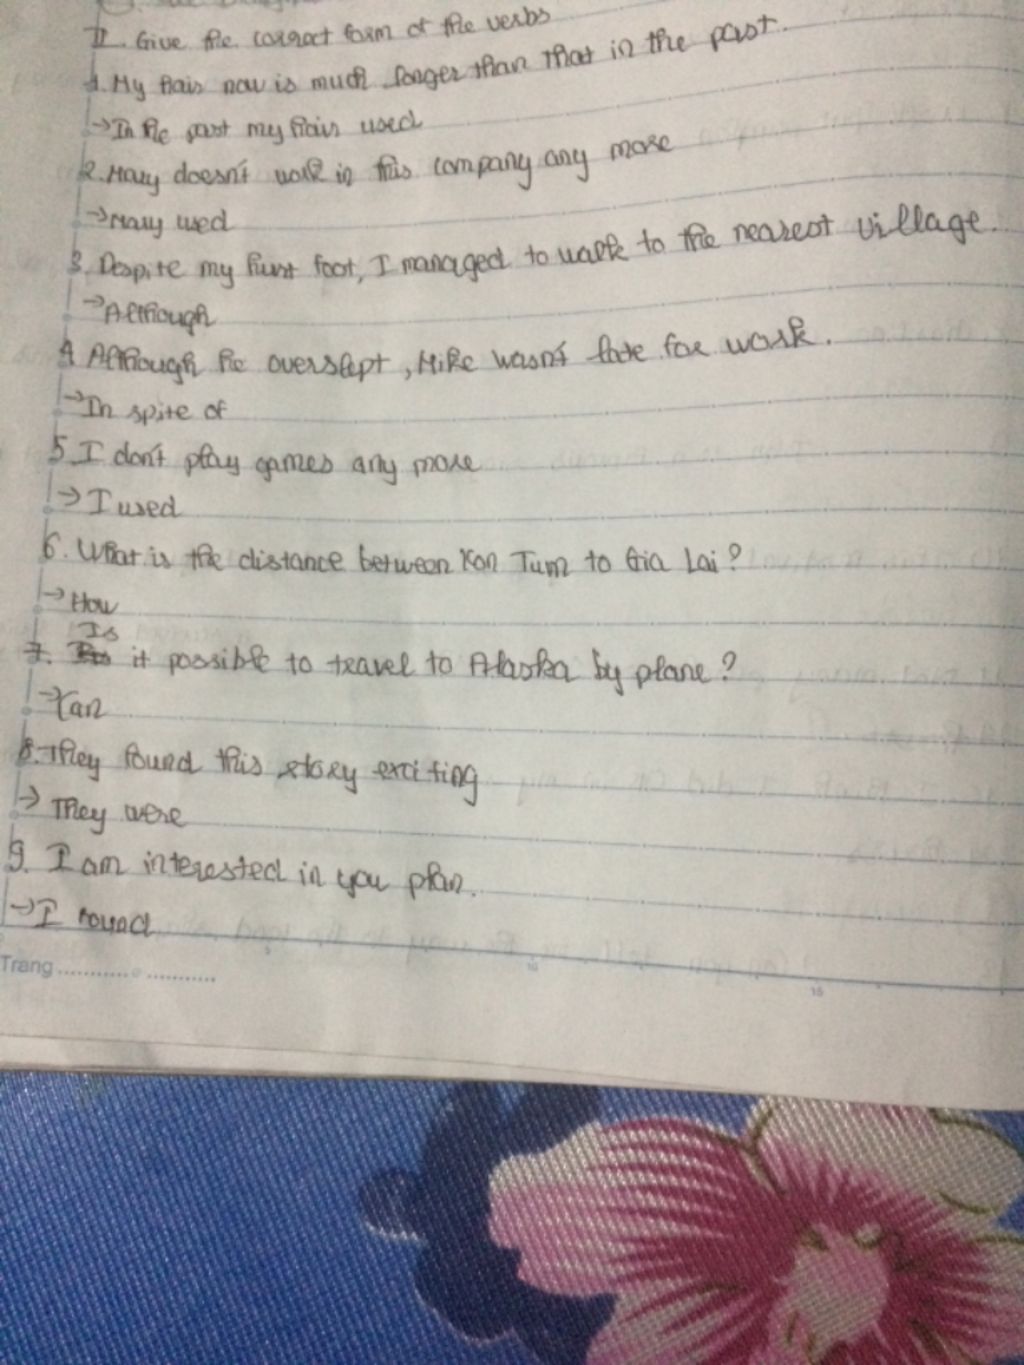 II. Give the correct form of the verbs
1. My hair now is much longer than that in the past.
→ In the past my hair used
2. Mary doesn't work in this company any more
→ Mary used
3. Despite my hurt foot, I managed to walk to the nearest village.
→ Although
4 Although he overslept, Mike wasn't late for work.
→ In spite of
5. I don't play games any more
→ I used
6. What is the distance between Kon Tum to Gia Lai?
→ How
7. Is it possible to travel to Alaska by plane?
→ Can
8. They found this story exciting
→ They were
9. I am interested in you plan.
→ I found
Trang
10
15